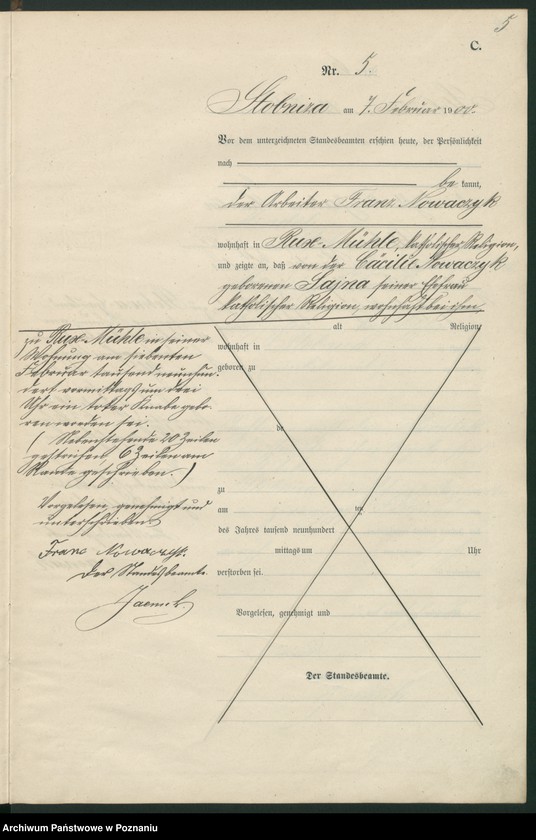 5
C.
Nr. 5.
Stobnica am 7. Februar 1900.
Vor dem unterzeichneten Standesbeamten erschien heute, der Persönlichkeit
nach
be kannt,
der Arbeiter Franz Nowaczyk
wohnhaft in Ruxe-Mühle, katholischer Religion,
und zeigte an, daß von der Cäcilie Nowaczyk
geborenen Sajna seiner Ehefrau
katholischer Religion, wohnhaft bei ihm
zu Ruxe-Mühle in seiner
Wohnung am siebenten
Februar tausend neunhun-
dert vormittags um drei
Uhr ein toter Knabe gebo-
ren worden sei.
( Nebenstehende 20 Zeilen
gestrichen, 6 Zeilen am
Rande geschrieben. )
Vorgelesen, genehmigt und
unterschrieben
Franc Nowaczyk.
Der Standesbeamte.
alt Religion,
wohnhaft in
geboren zu
de
zu
am ten
des Jahres tausend neunhundert
mittags um Uhr
verstorben sei.
Vorgelesen, genehmigt und
Der Standesbeamte.
Archiwum Państwowe w Poznaniu